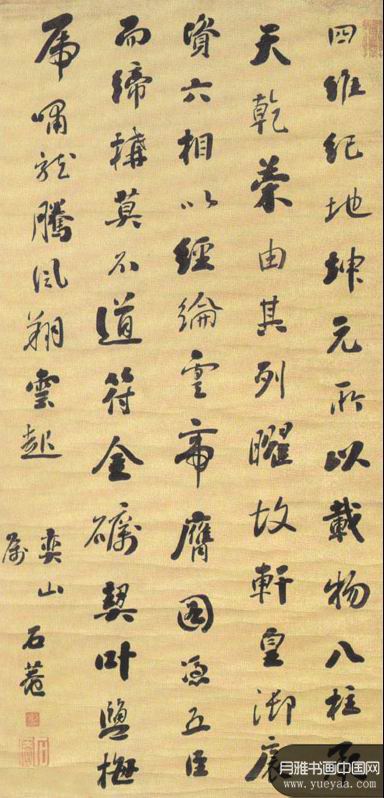 四維紀地坤元所以載物八柱承
天乾由其列曜故軒皇御宸
資六相以經綸虞帝膺圖憑五臣
而締構莫不道符金礪契叶鹽梅
虎嘯龍騰風翔雲起
奕山
屬
石菴
月雅书画中国网
www.yueyaa.com